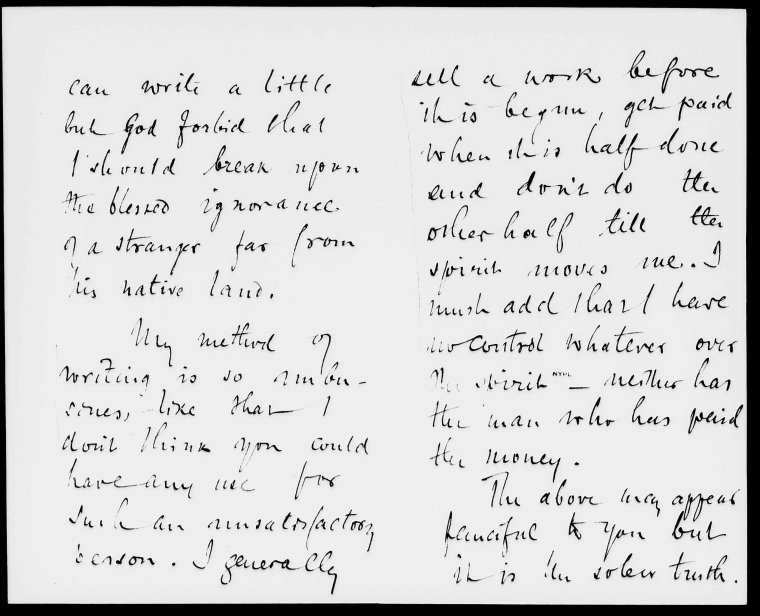 can write a little
but God forbid that
I should break upon
the blessed ignorance
of a stranger far from
his native land.
My method of
writing is so unbu-
siness, like that I
don't think you could
have any use for
such an unsatisfactory
person. I generally
sell a work before
it is begun, get paid
when it is half done
and don't do the
other half till the
spirit moves me. I
must add that I have
no control whatever over
the spirit — neither has
the man who has paid
the money.
The above may appear
fanciful to you but
it is the sober truth.
NYPL